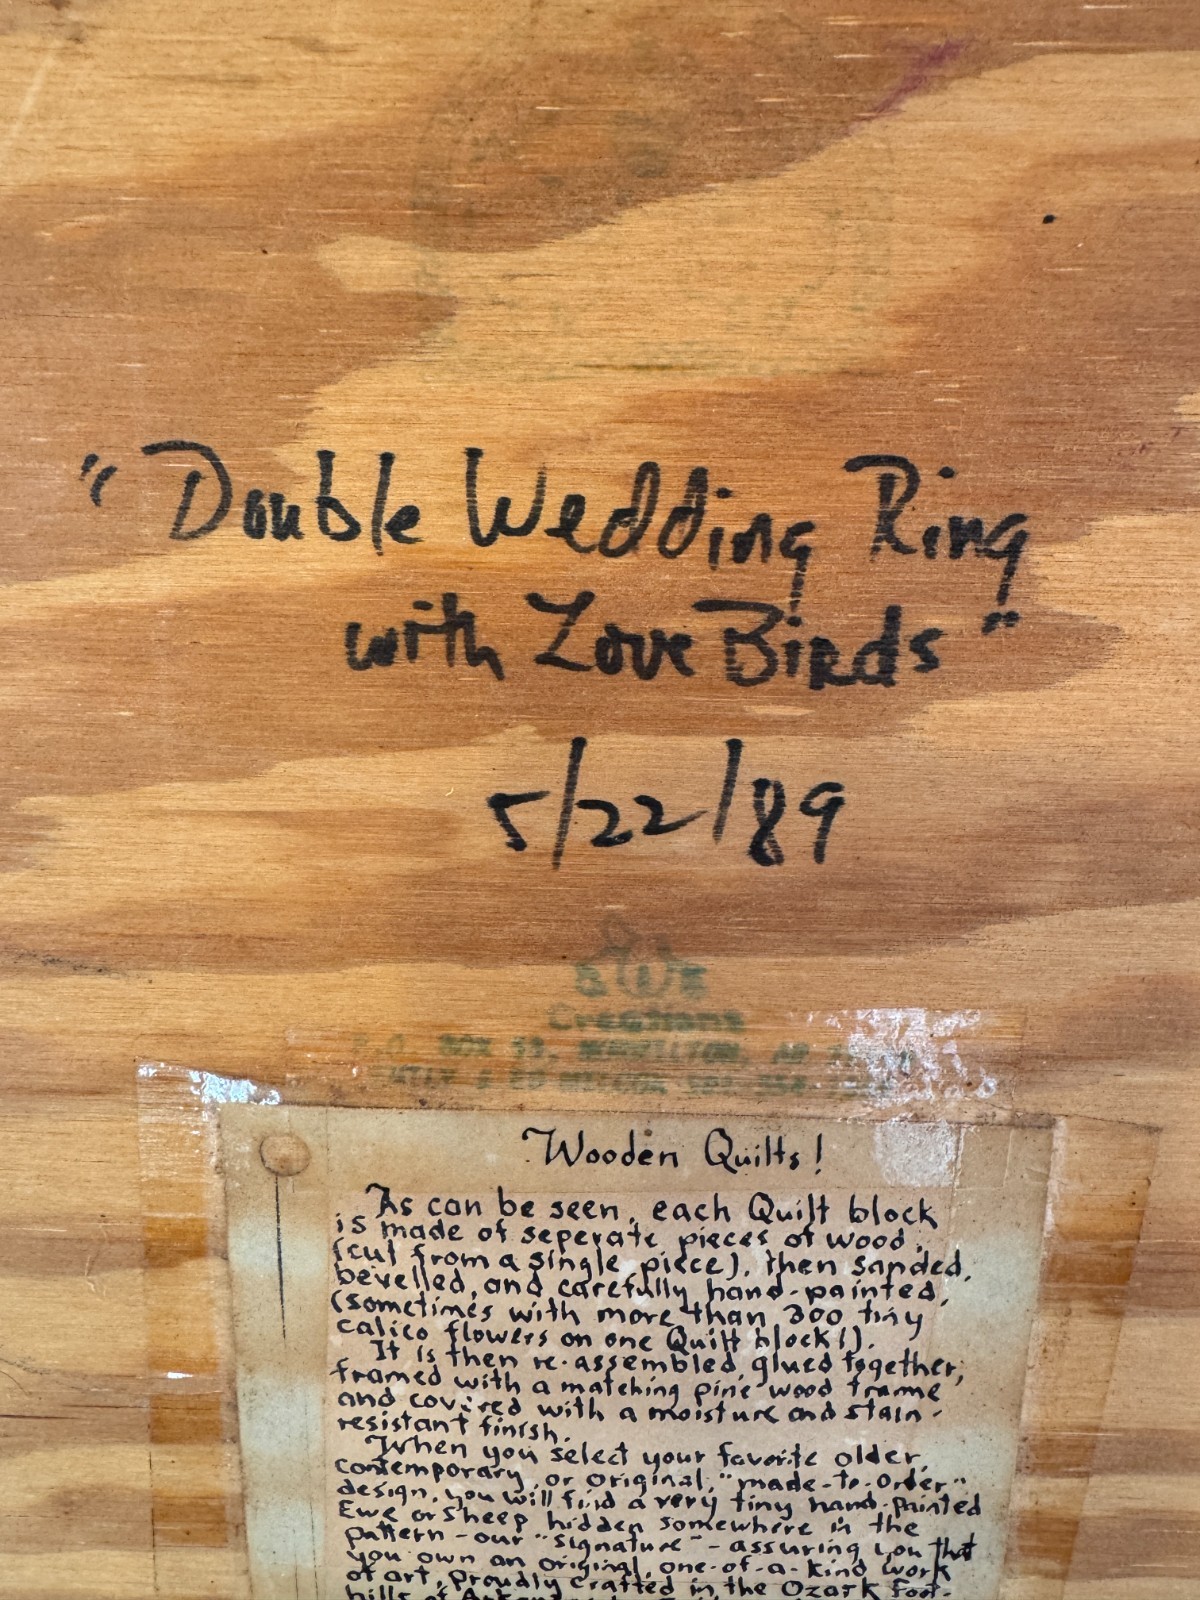 "Double Wedding Ring
with Love Birds"
5/22/89
Creations
P.O. BOX
Wooden Quilts!
As can be seen, each Quilt block
is made of seperate pieces of wood,
(cut from a single piece), then sanded,
bevelled, and carefully hand-painted,
(sometimes with more than 300 tiny
calico flowers on one Quilt block!).
It is then re-assembled, glued together,
framed with a matching pine wood frame
and covered with a moisture and stain-
resistant finish.
When you select your favorite older,
contemporary, or original, "made-to-order"
design, you will find a very tiny hand-painted
Ewe or sheep hidden somewhere in the
pattern - our "signature" - assuring you that
you own an original, one-of-a-kind work
of art, proudly crafted in the Ozark foot-
hills of